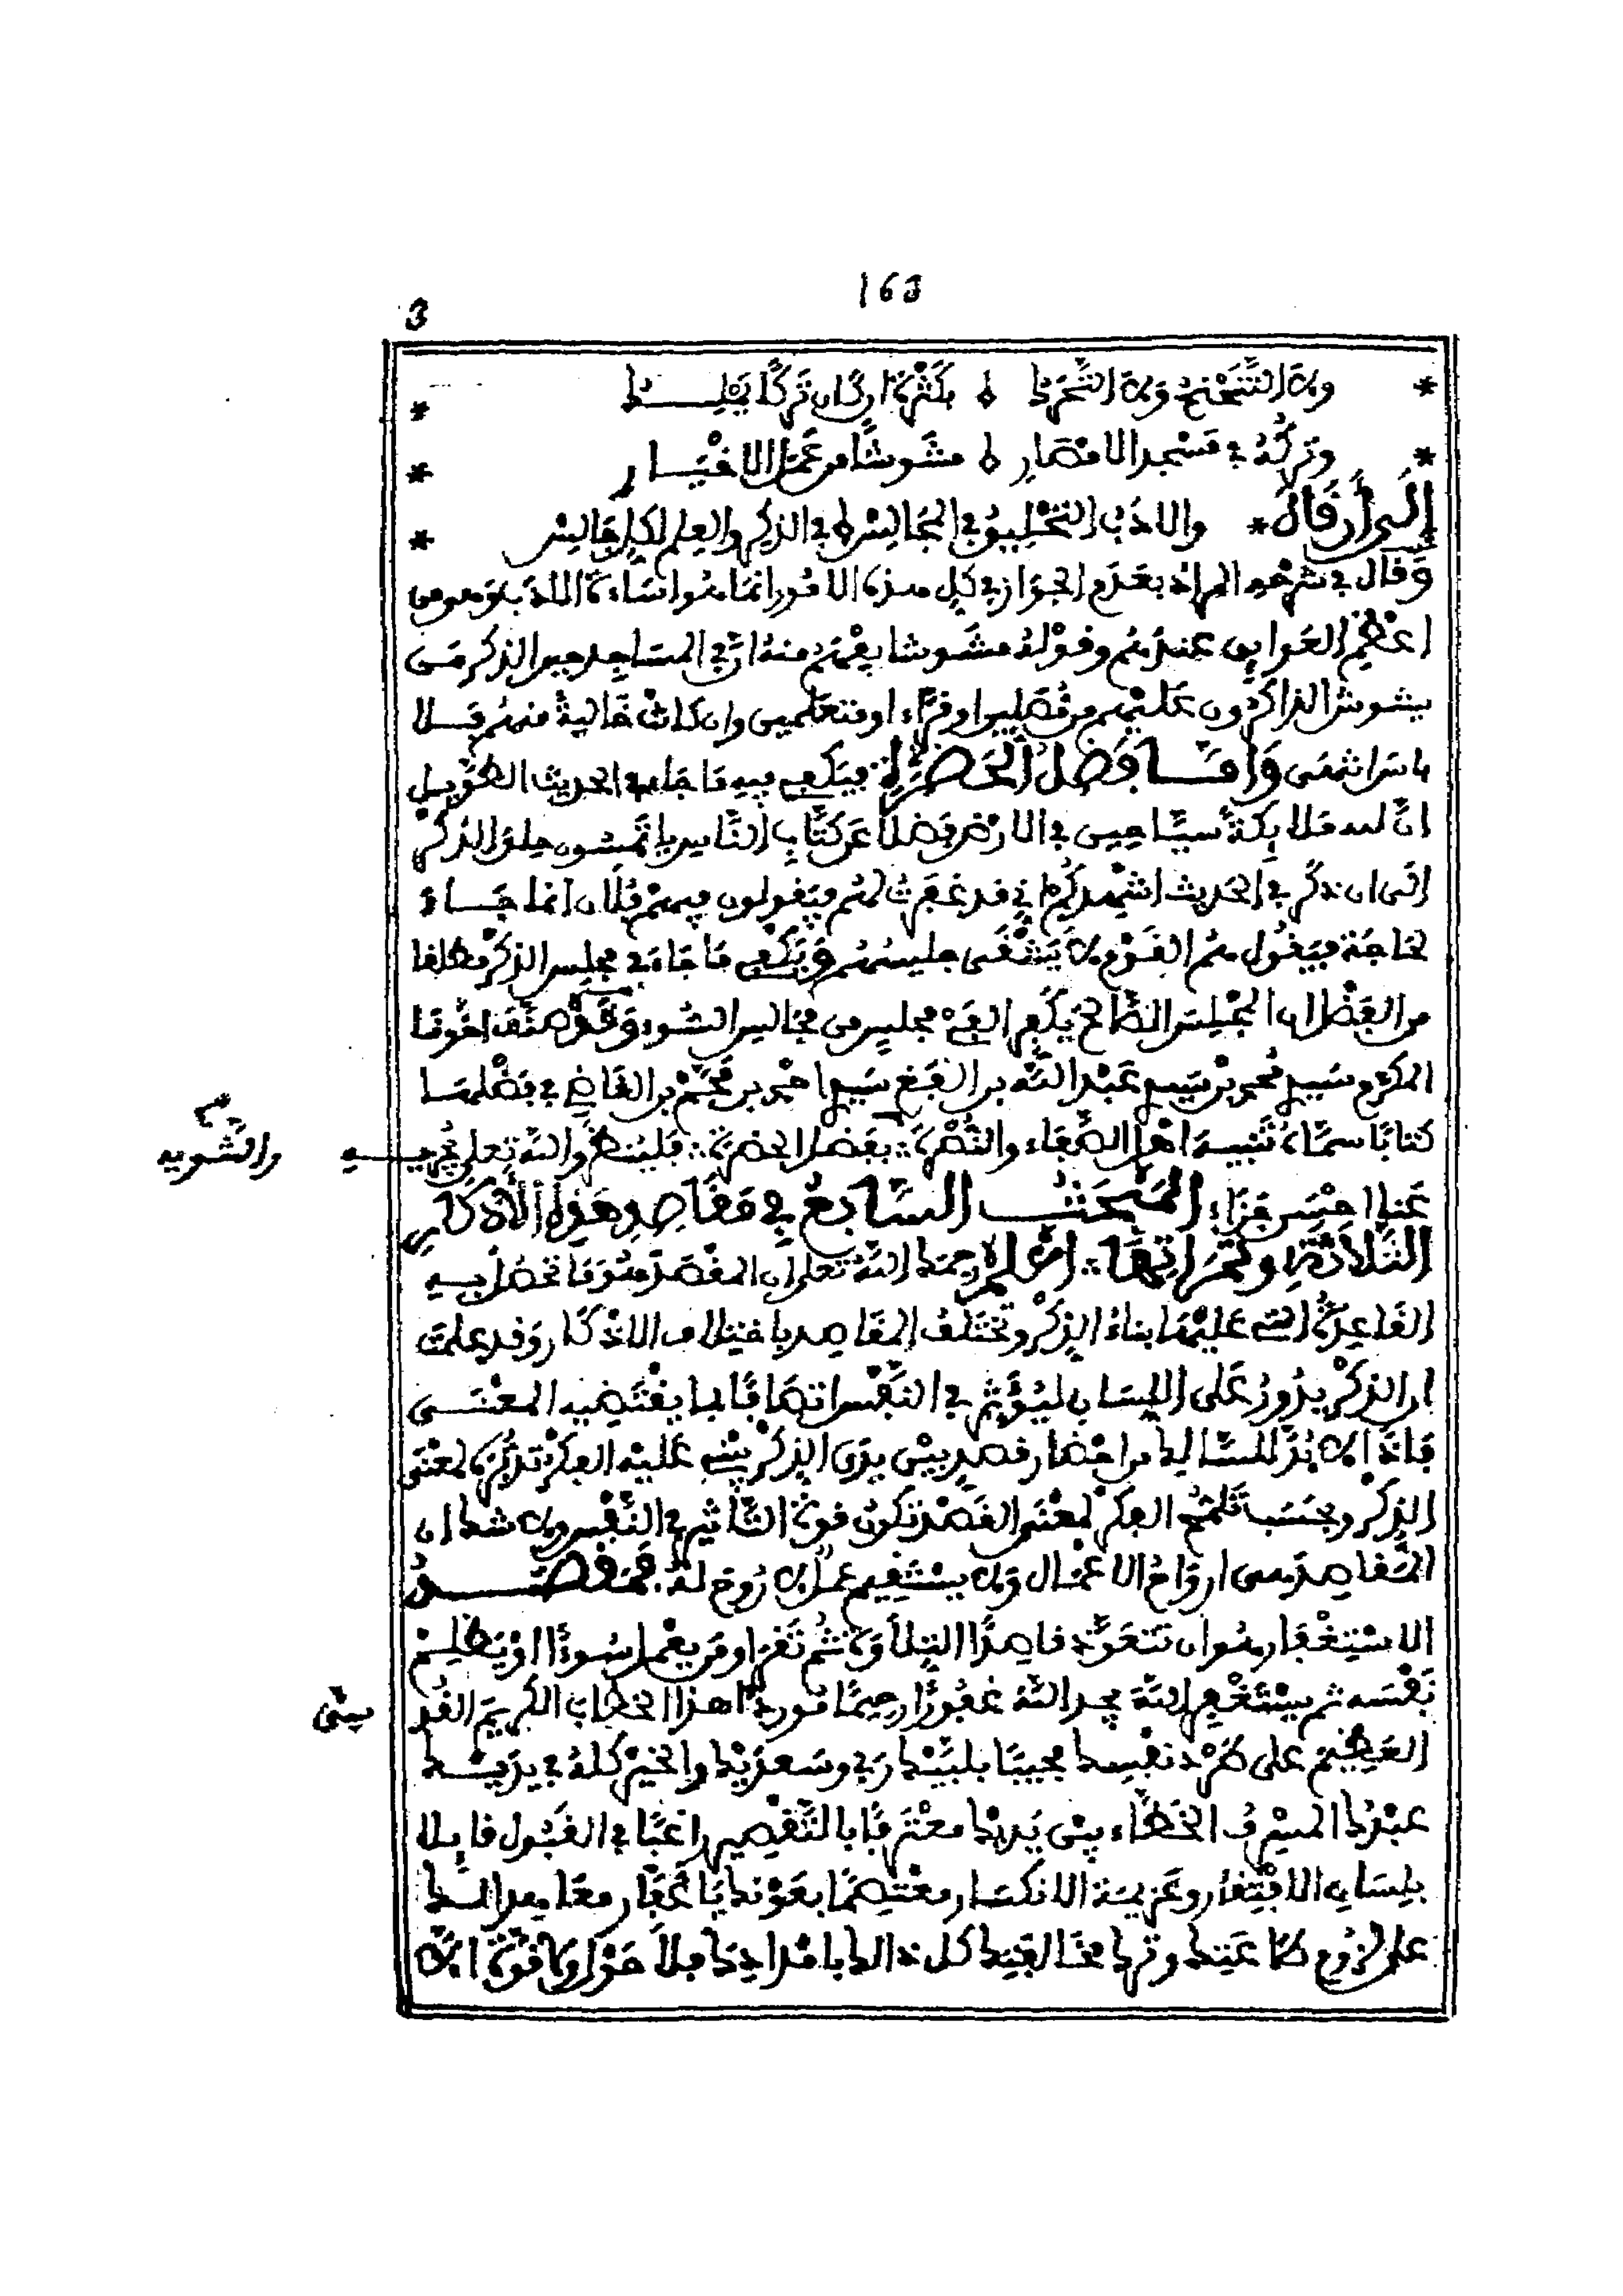 163
3
* ولا التنحنح ولا التحرك ٥ بكثرة ان كان تركا يملك *
* وتركه في مسجد الامصار ٥ مشوشا من عمل الاخيار *
إلى أن قال * والادب التحليق في المجالس ٥ في الذكر والعلم لكل جالس *
وقال في شرحه المراد بعدم الجواز في كل هذه الامور انما هو اساءة الادب وهو من
اعظم العوائق عندهم وقوله مشوشا يفهم منه ان في المساجد حين الذكر من
يشوش الذاكرون عليهم من مصلين او قراء او متعلمين وان كانت خالية منهم فلا
باس انتهى وَأمَّا فَضل الحَضرَة فيكفي فيه ما جاء في الحديث الطويل
ان لله ملائكة سياحين في الارض فضلا عن كتاب الناس يلتمسون حلق الذكر
الى ان ذكر في الحديث اشهدكم اني قد غفرت لهم فيقولون فيهم فلان انما جاء
لحاجة فيقول هم القوم لا يشقى جليسهم ويكفي ما جاء في مجلس الذكر مطلقا
من الفضل ان المجلس الصالح يكفر الفي مجلس من مجالس السوء وقد صنف اخونا
المكرم سيدي محمد بن سيدي عبد الله بن الفغ سيدي احمد بن محم بن القاضي في فضلها
كتابا سماه تنبيه اهل الصفاء والنضرة بفضل الحضرة فلينظر والله تعلى يجزيه
والتشويه
عنا احسن جزاء المَبحَث السَّابعُ فِي مَقَاصِدِ هَذِهِ الأَذكَارِ
الثلاثة وثمراتها اعلم رحمك الله تعلى ان المقصد هو ما تحصل به
القاعدة التي عليها بناء الذكر وتختلف المقاصد باختلاف الاذكار وقد علمت
ان الذكر يدور على اللسان ليؤثر في النفس اتصافا بما يقتضيه المعنى
فاذا لا بد للسالك من احضار قصد بين يدي الذكر ينبني عليه الفكر تدبره لمعنى
الذكر وبحسب تلمح الفكر لمعنى القصد تكون قوة التأثير في النفس ولا شك ان
المقاصد هي ارواح الاعمال ولا يستقيم عمل لا روح له فمقصد
الاستغفار هو ان تتعوذ قاصدا التلاوة ثم تقرا ومن يعمل سوءا او يظلم
نفسه ثم يستغفر الله يجد الله غفورا رحيما موردا هذا الخطاب الكريم القد
سي
العظيم على طرد نفسك مجيبا بلبيك ربي وسعديك والخير كله في يديك
عبدك المسرف الخطاء بين يديك معترفا بالتقصير راغبا في القبول قائلا
بلسان الافتقار وعزيمة الانكسار معتصما بعونك يا غفار معاهدا لك
على لزوم طاعتك وترك مخالفتك كل ذلك بامدادك فلا حول ولا قوة الا